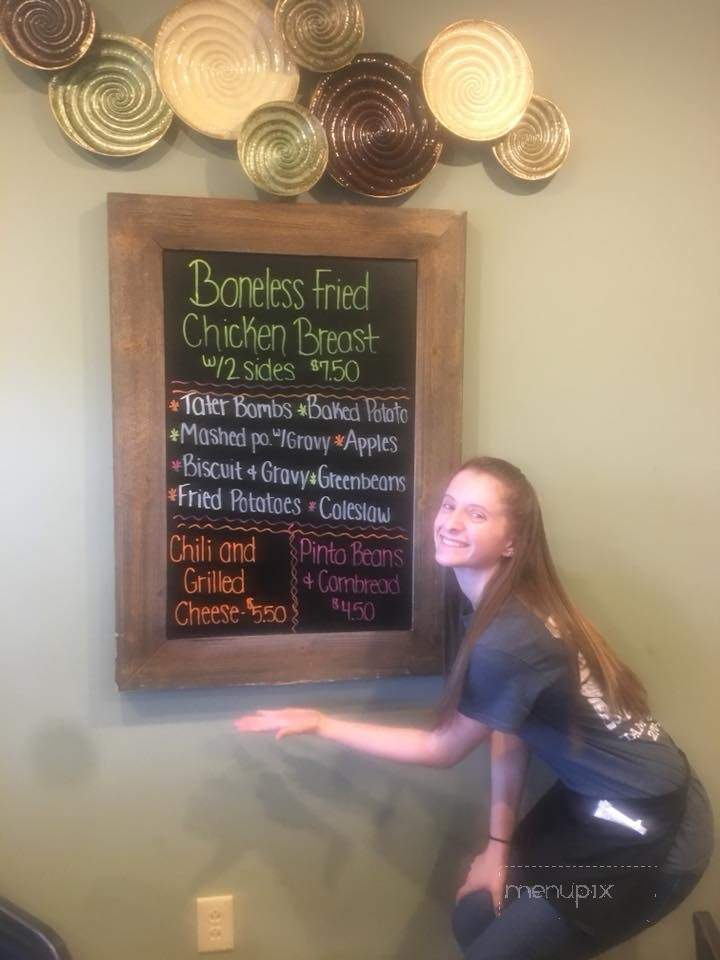 Boneless Fried
Chicken Breast
w/2 sides $7.50
*Tater Bombs *Baked Potato
*Mashed po. w/Gravy *Apples
*Biscuit & Gravy *Greenbeans
*Fried Potatoes *Coleslaw
Chili and
Grilled
Cheese-$5.50
Pinto Beans
& Cornbread
$4.50
menupix